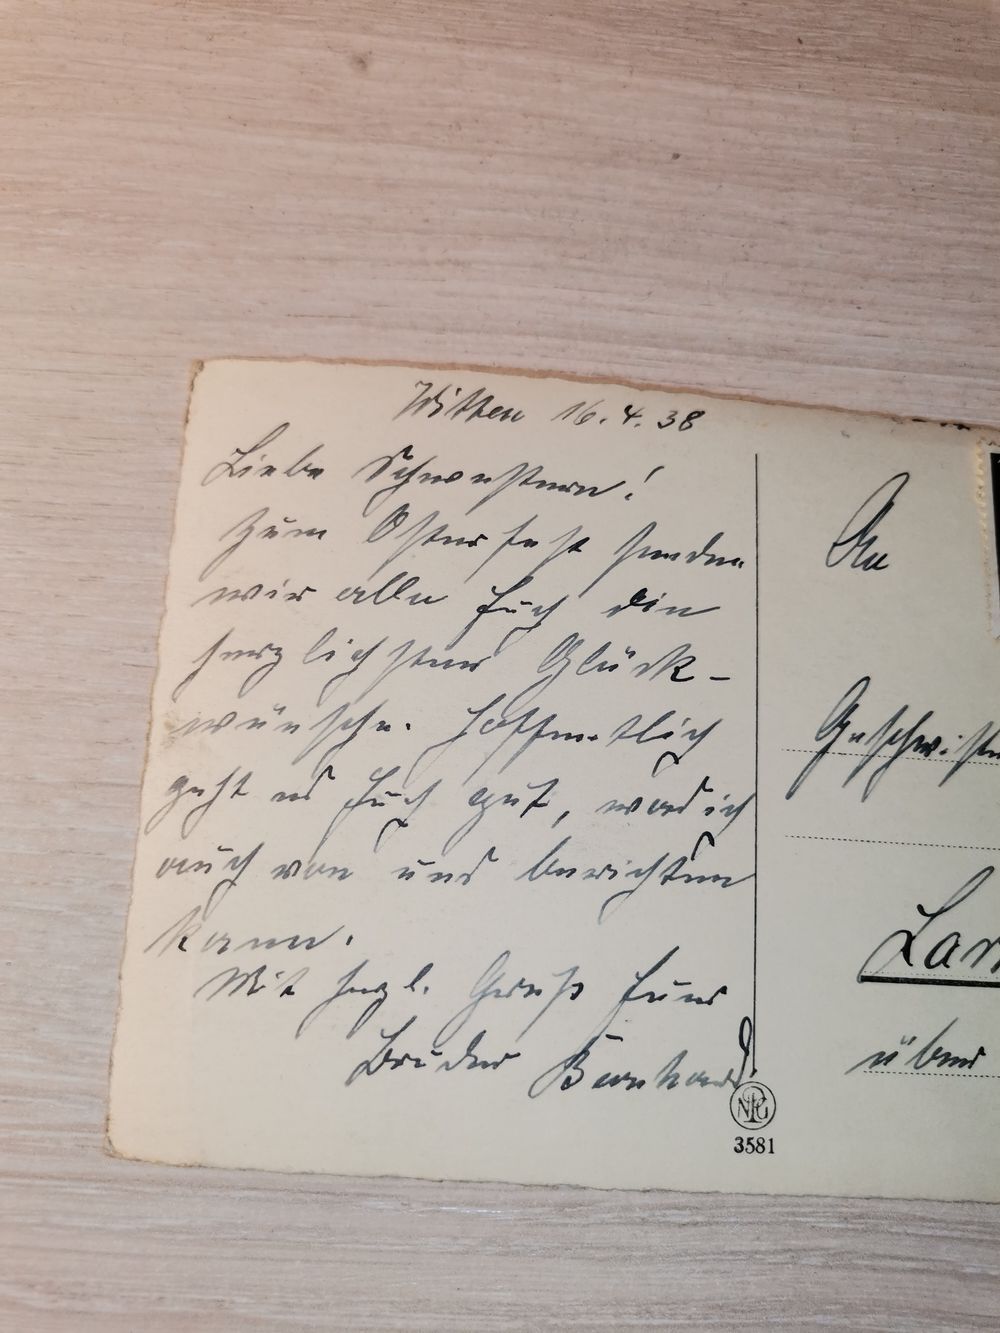 Witten 16.4.38
Liebe Schwestern!
Zum Osterfest senden
wir alle Euch die
herzlichsten Glück-
wünsche. Hoffentlich
geht es Euch gut, was ich
auch von uns berichten
kann.
Mit herzl. Gruß Euer
Bruder Bernhard.
An
Geschwiste
Lar
über
NPG
3581